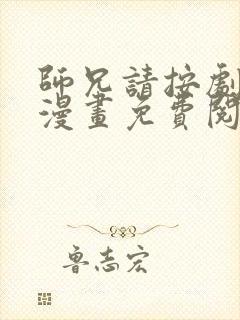 師兄請按劇
漫畫免費閱
魯志宏